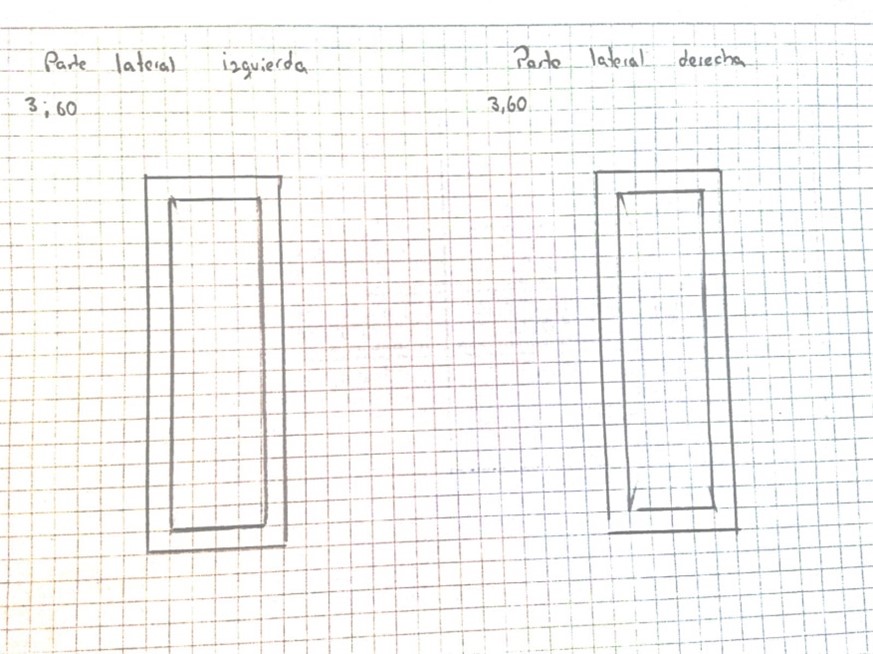 Parte lateral izquierda
3;60
Parte lateral derecha
3,60